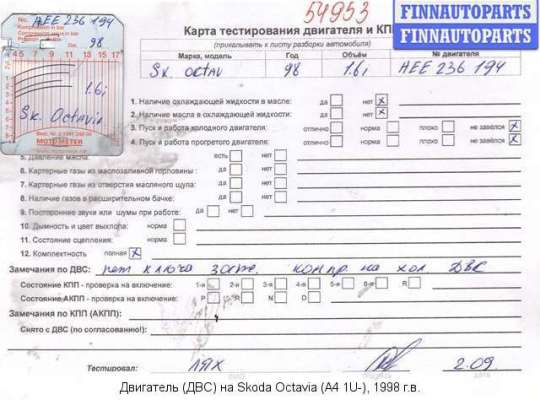 54953
FINNAUTOPARTS
FINNAUTOPARTS
AEE 236 194
98
4 5 7 9 11 13 15 17
1.6i
Sk. Octavia
MOTOMETER
Карта тестирования двигателя и КП
(прикалывать к листу разборки автомобиля)
Марка, модель Год Объём № двигателя
Sk. octav 98 1.6i AEE 236 194
1. Наличие охлаждающей жидкости в масле: да нет X
2. Наличие масла в охлаждающей жидкости: да нет X
3. Пуск и работа холодного двигателя: отлично норма плохо не завёлся X
4. Пуск и работа прогретого двигателя: отлично норма плохо не завёлся X
5. Давление масла: есть нет
6. Картерные газы из маслозаливной горловины: да нет
7. Картерные газы из отверстия масляного щупа: да нет
8. Наличие газов в расширительном бачке: да нет
9. Посторонние звуки или шумы при работе: да нет
10. Дымность и цвет выхлопа: норма
11. Состояние сцепления: норма
12. Комплектность полная X
Замечания по ДВС: нет ключа компр. на хол ДВС
Состояние КПП - проверка на включение: 1-я 2-я 3-я 4-я 5-я 6-я R
Состояние АКПП - проверка на включение: P R N D
Замечания по КПП (АКПП):
Снято с ДВС (по согласованию!):
Тестировал: ЛЯХ 2.09.
Двигатель (ДВС) на Skoda Octavia (A4 1U-), 1998 г.в.